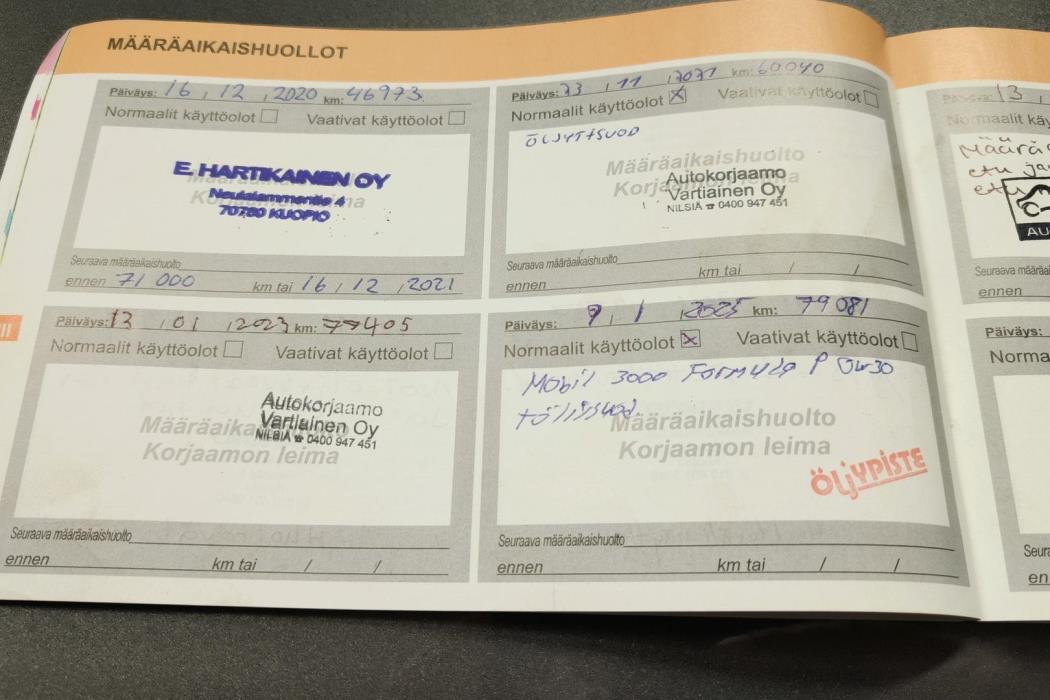 MÄÄRÄAIKAISHUOLLOT
Päiväys: 16 , 12 , 2020 km: 46973
Normaalit käyttöolot Vaativat käyttöolot
Määräaikaishuolto
Korjaamon leima
E. HARTIKAINEN OY
Neulalammentie 4
70780 KUOPIO
Seuraava määräaikaishuolto
ennen 71 000 km tai 16 / 12 , 2021
Päiväys: 23 , 11 , 2021 km: 60040
Normaalit käyttöolot X Vaativat käyttöolot
Määräaikaishuolto
Korjaamon leima
Autokorjaamo
Vartiainen Oy
NILSIÄ ☎ 0400 947 451
Seuraava määräaikaishuolto
ennen km tai / /
Päiväys: 13 , 01 , 2023 km: 77405
Normaalit käyttöolot Vaativat käyttöolot
Määräaikaishuolto
Korjaamon leima
Autokorjaamo
Vartiainen Oy
NILSIÄ ☎ 0400 947 451
Seuraava määräaikaishuolto
ennen km tai / /
Päiväys: 9 , 1 , 2025 km: 79081
Normaalit käyttöolot X Vaativat käyttöolot
Mobil 3000 Formula P 0w30
Määräaikaishuolto
Korjaamon leima
ÖljyPISTE
Seuraava määräaikaishuolto
ennen km tai / /
Päiväys: 13 ,
Normaalit
etu
etu
AU
Seuraava
ennen
Päiväys:
Norma
Seura
en